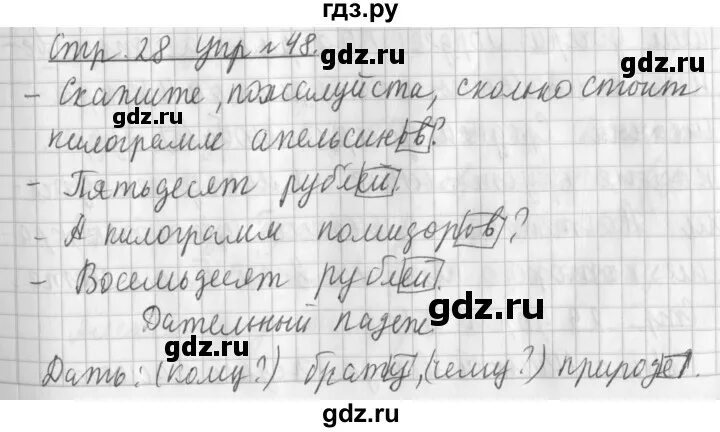 гдз.ру
Стр. 28 упр № 48.
gdz.ru
- Скажите, пожалуйста, сколько стоит
gdz.ru gdz.ru
килограмм апельсинов?
- Пятьдесят рублей.
gdz.ru
- А килограмм помидоров?
- Восемьдесят рублей.
gdz.ru gdz.ru
Дательный падеж
Дать: (кому?) брату, (чему?) природе.
gdz.ru